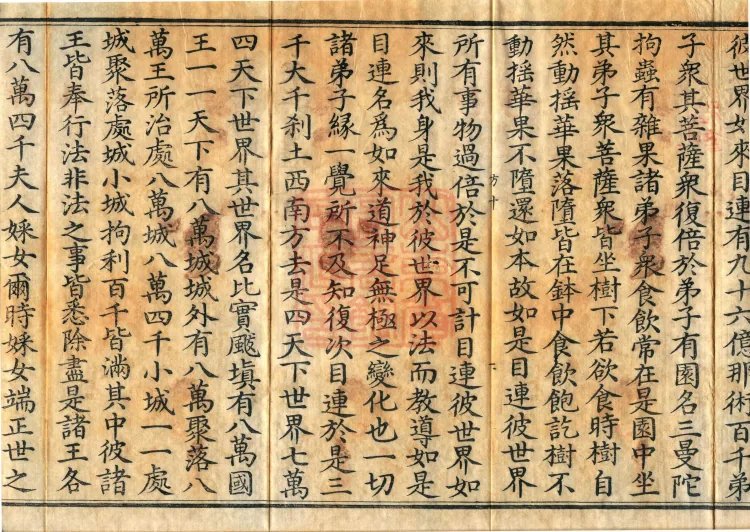 彼世界如來目連有九十六億那術百千弟
子衆其菩薩衆復倍於弟子有園名三曼陀
拘蟲有雜果諸弟子衆食飲常在是園中坐
其弟子衆菩薩衆皆坐樹下若欲食時樹自
然動搖華果落墮皆在鉢中食飲飽訖樹不
動搖華果不墮還如本故如是目連彼世界
方十
所有事物過倍於是不可計目連彼世界如
來則我身是我於彼世界以法而教導如是
目連名爲如來道神足無極之變化也一切
諸弟子緣一覺所不及知復次目連於是三
千大千刹土西南方去是四天下世界七萬
四天下世界其世界名比實颰塡有八萬國
王一一天下有八萬城城外有八萬聚落八
萬王所治處八萬城八萬四千小城一一處
城聚落處城小城拘利百千皆滿其中彼諸
王皆奉行法非法之事皆悉除盡是諸王各
有八萬四千夫人婇女爾時婇女端正世之